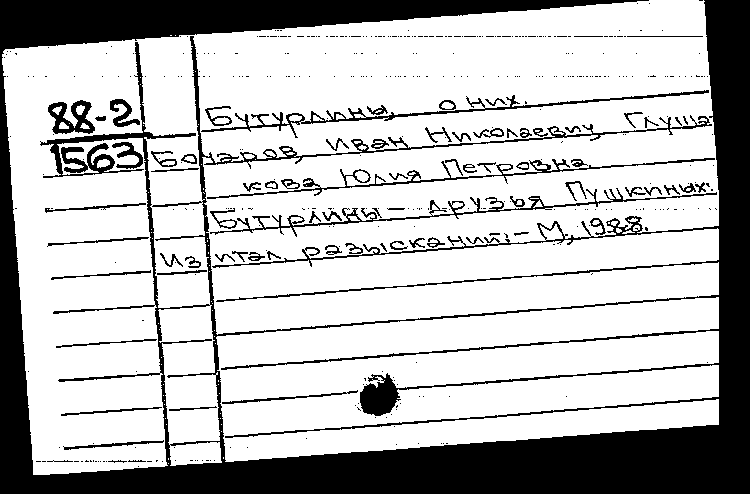 88-2
1563
Бутурлины, о них.
Бочаров, Иван Николаевич, Глуша-
кова, Юлия Петровна
Бутурлины – друзья Пушкиных:
Из итал. разысканий. – М., 1988.